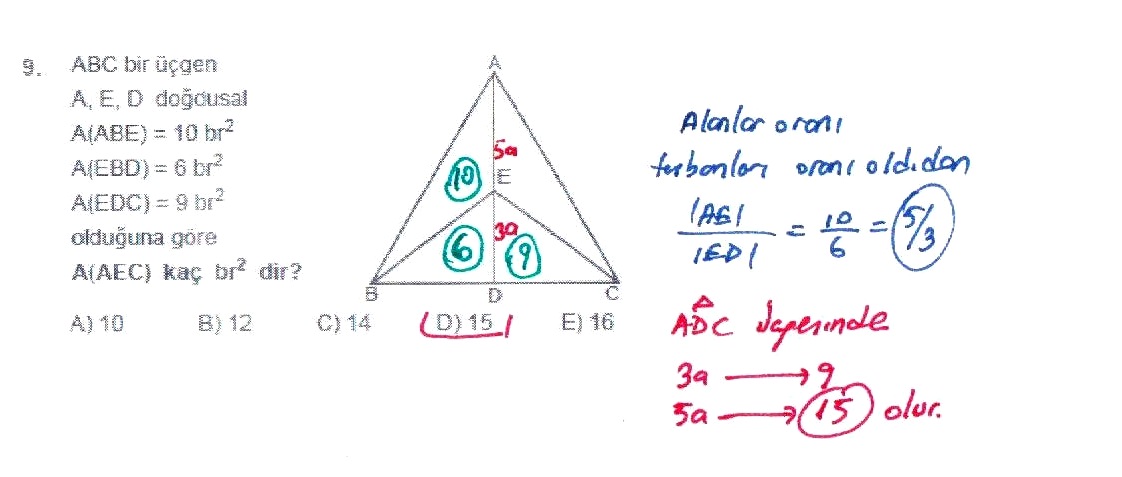 9. ABC bir üçgen
A, E, D doğrusal
A(ABE) = 10 br²
A(EBD) = 6 br²
A(EDC) = 9 br²
olduğuna göre
A(AEC) kaç br² dir?
A) 10 B) 12 C) 14 D) 15 E) 16
A
5a
10
E
3a
6
9
B
D
C
Alanlar oranı
tabanları oranı old.dan
|AE| / |ED| = 10/6 = 5/3
ADC üçgeninde
3a → 9
5a → 15 olur.